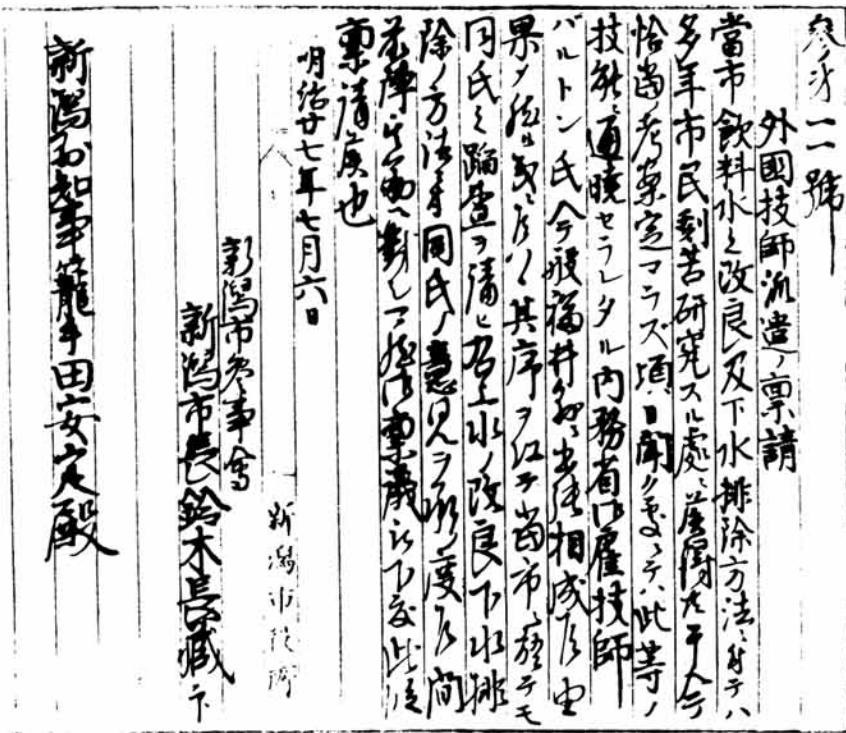 参第一一號
外國技師派遣ノ稟請
當市飲料水之改良及下水排除方法ニ付テハ
多年市民刻苦研究スル處ニ候得共于今
恰當ノ考案定マラズ頃日聞ク處ニテハ此等ノ
技術ニ通暁セラレタル内務省御雇技師
バルトン氏今般福井縣ヘ出張相成候由
果タ然ラバ其序ヲ以テ當市ニ於テモ
同氏之踏査ヲ請ヒ右上水ノ改良下水排
除ノ方法等同氏ノ意見ヲ承リ度候間
其筋ヘ對シ御稟議被下度此段
稟請候也
明治廿七年七月六日
新潟市参事會
新潟市長鈴木長藏
新潟縣知事籠手田安定殿
新潟市役所